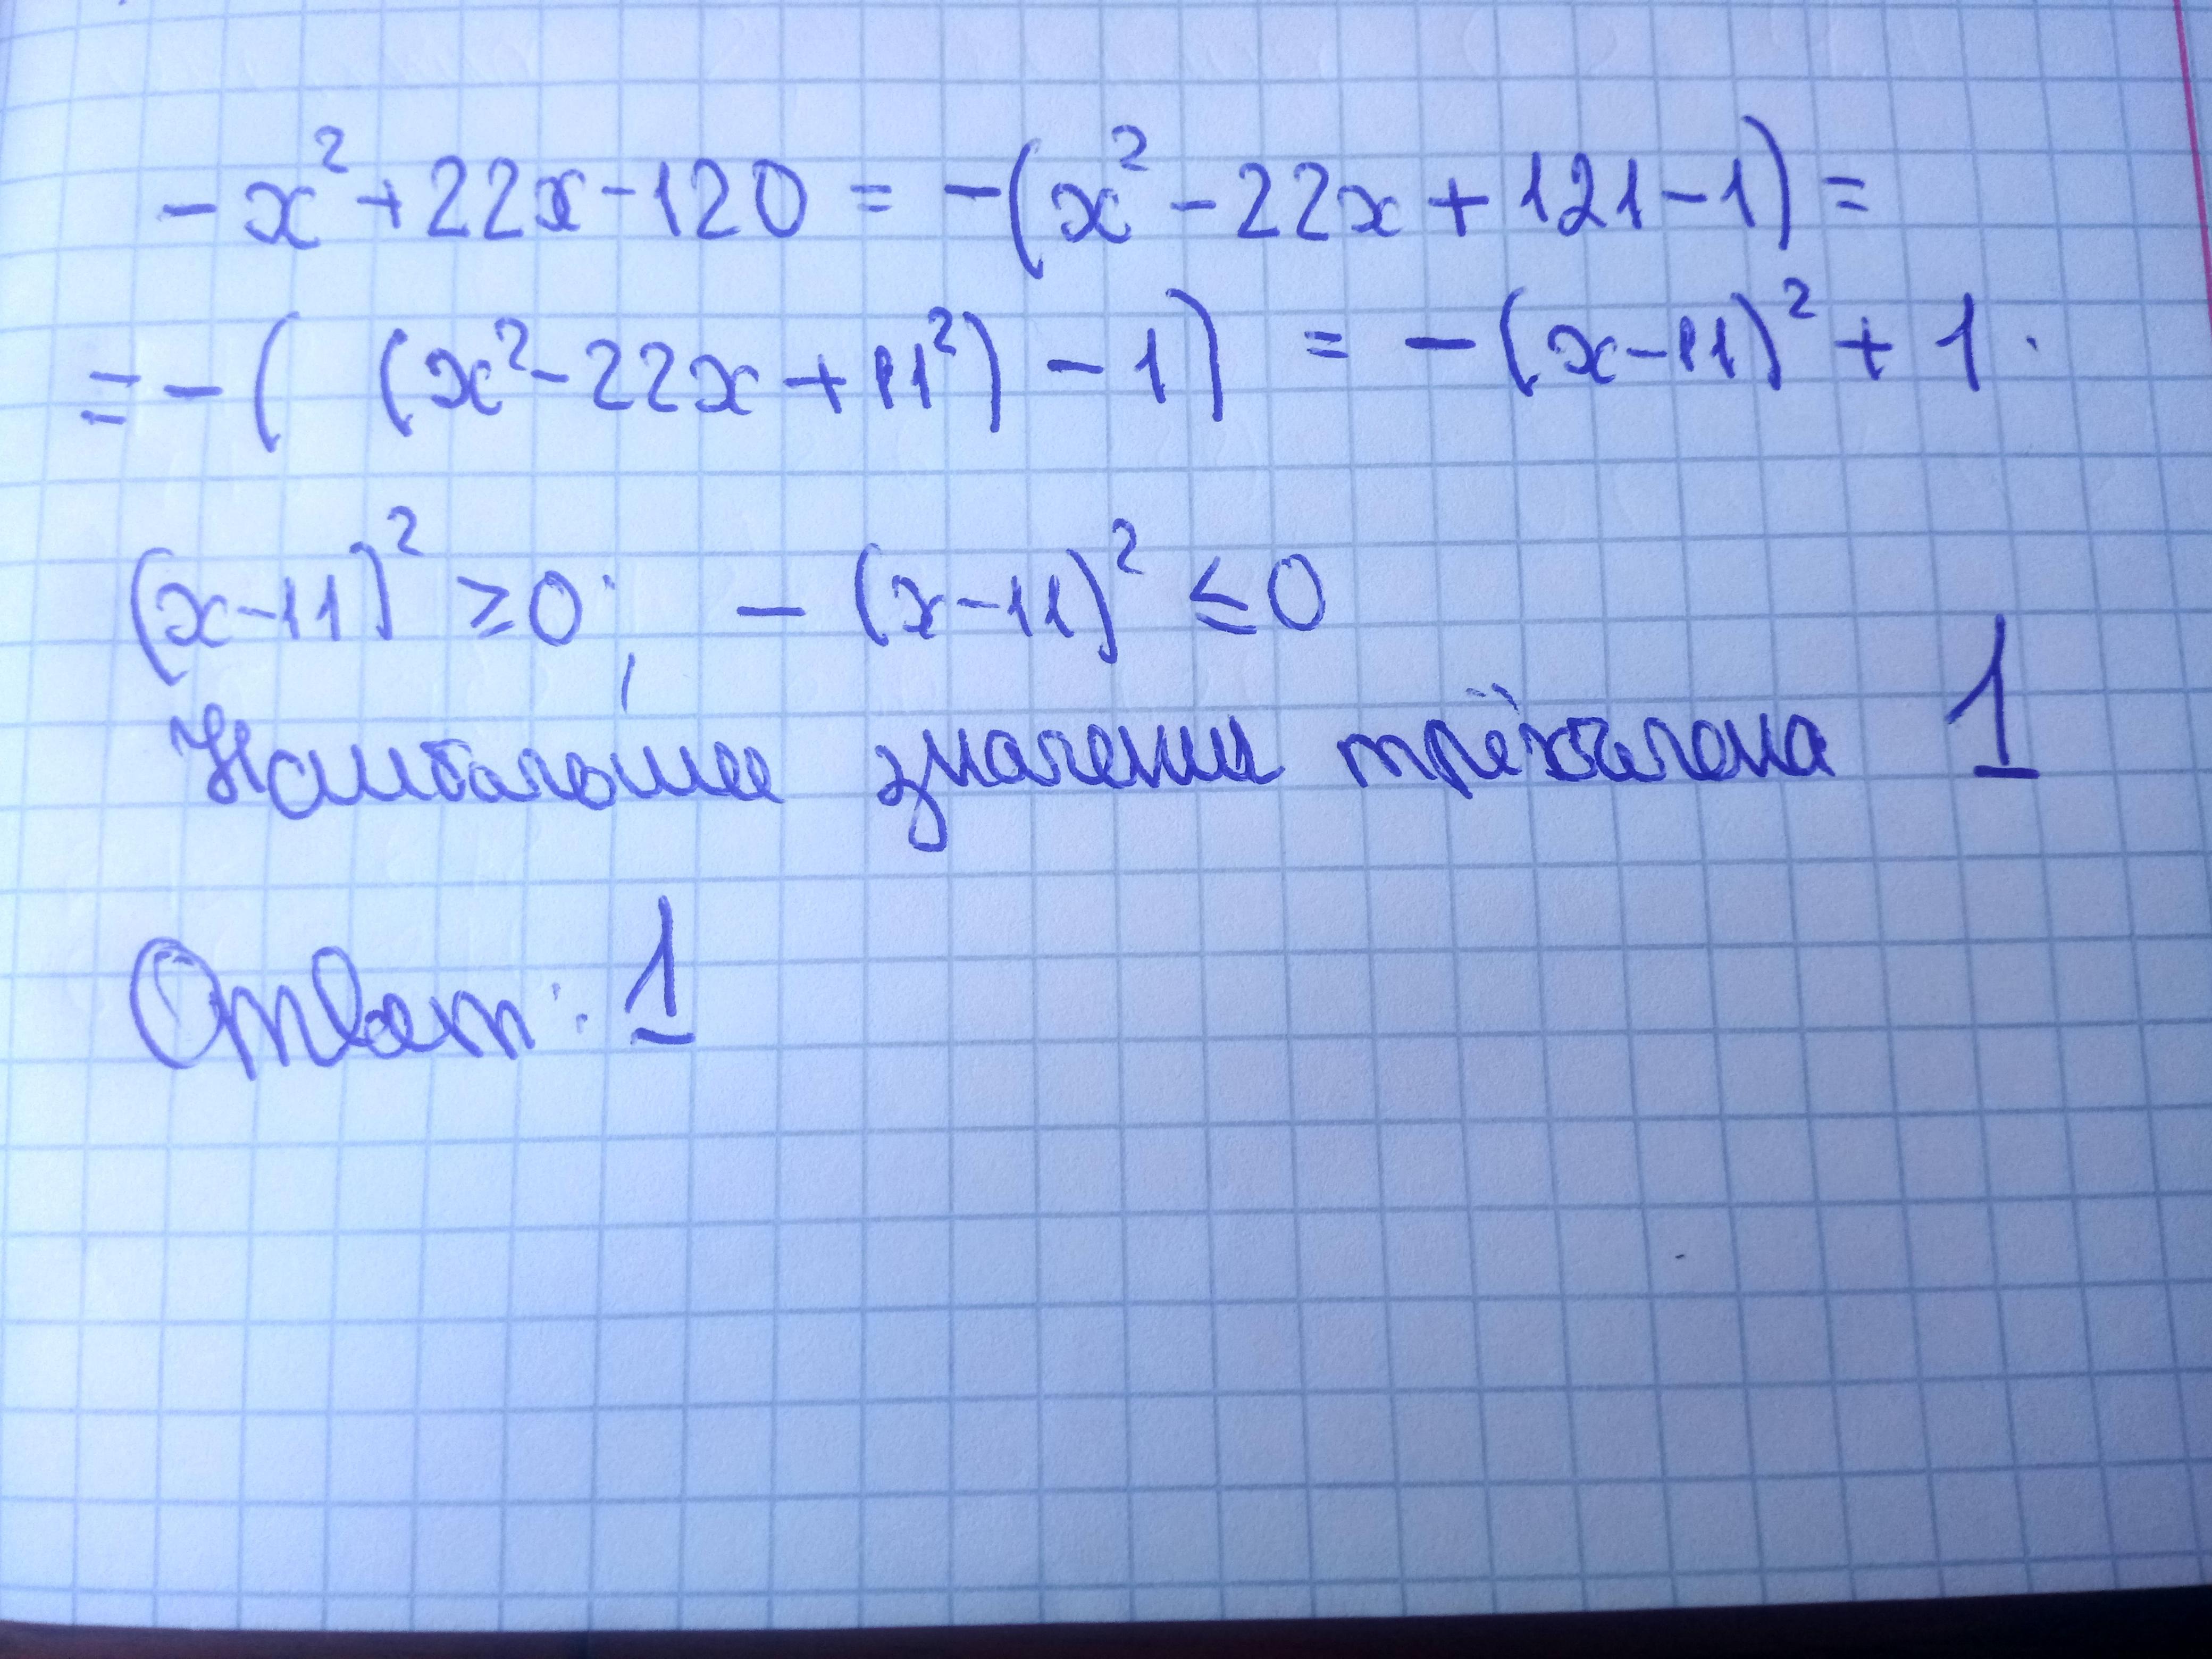 -x²+22x-120 = -(x²-22x+121-1)=
=-( (x²-22x+11²)-1) = -(x-11)²+1.
(x-11)² ≥0; -(x-11)² ≤0
Наибольшее значение трёхчлена 1
Ответ: 1